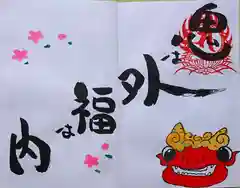 鬼は
外
福は
内